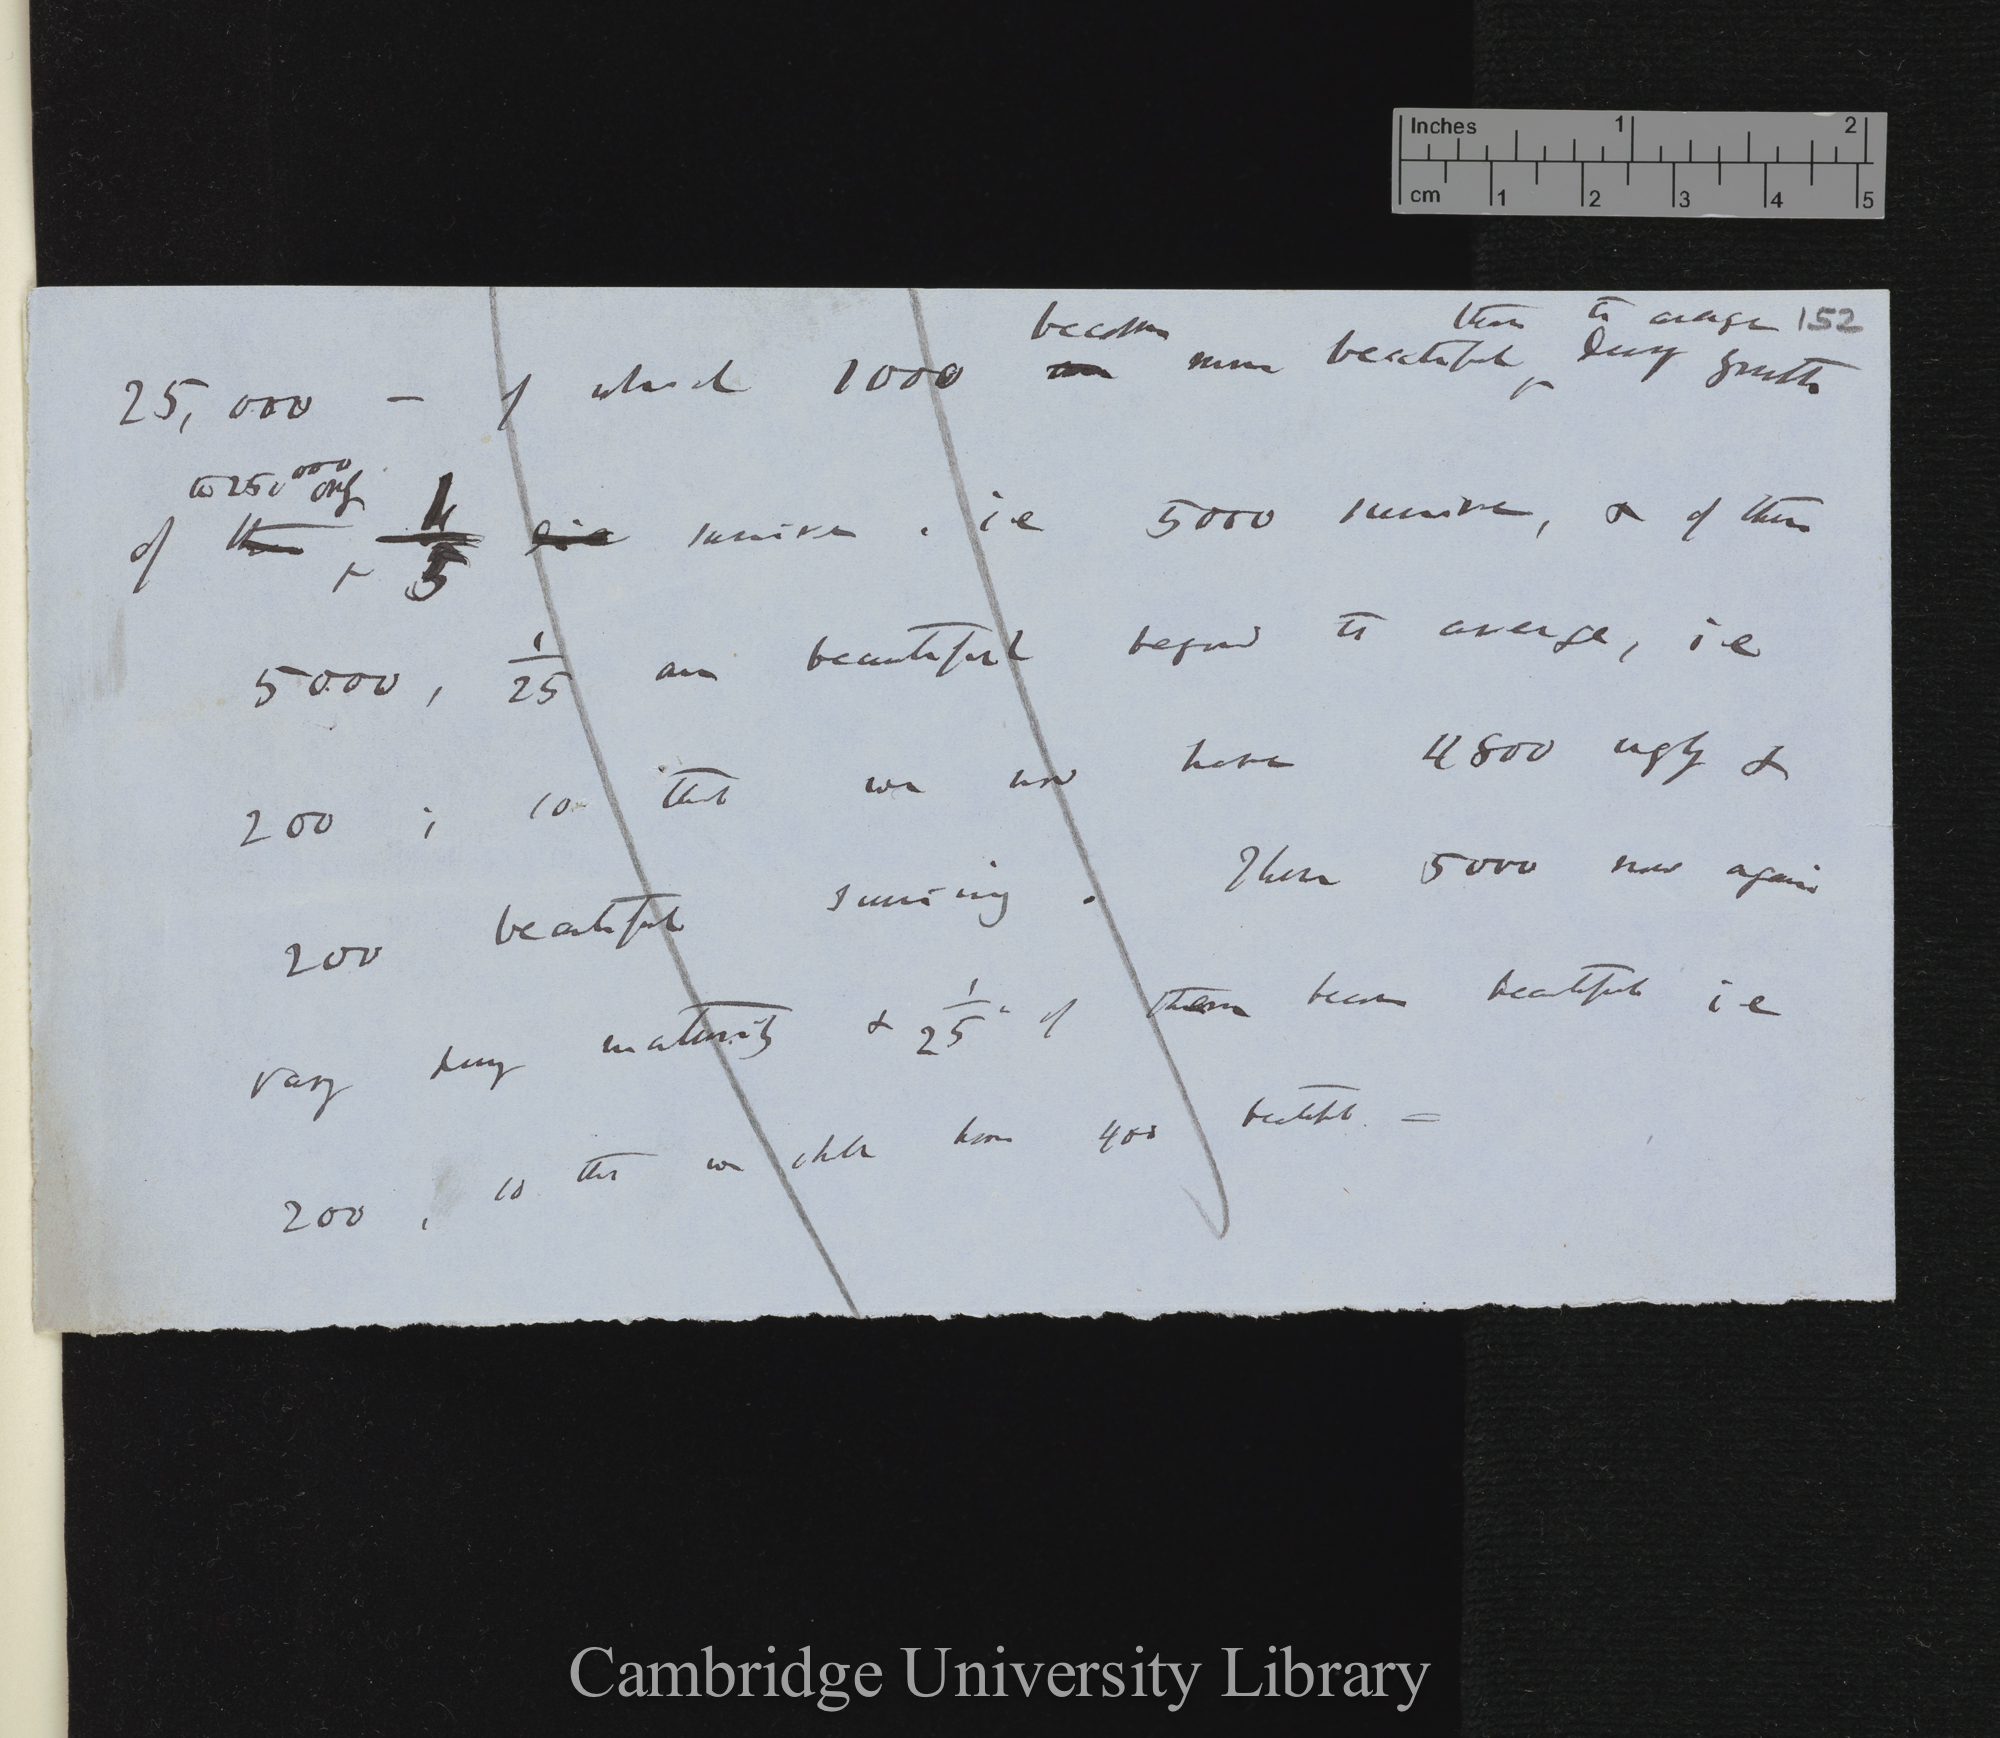 Inches 1 2
cm 1 2 3 4 5
152
become than the average
25,000 — of which 1000 are more beautiful, during growth
the 25000 only
of them 1/5 die survive. ie 5000 survive, & of these
5000, 1/25 are beautiful beyond the average, ie
200; so that we now have 4800 ugly &
200 beautiful surviving. These 5000 now again
vary during maturity & 1/25 of them become beautiful ie
200, so that we shd have 400 beautiful. =
Cambridge University Library